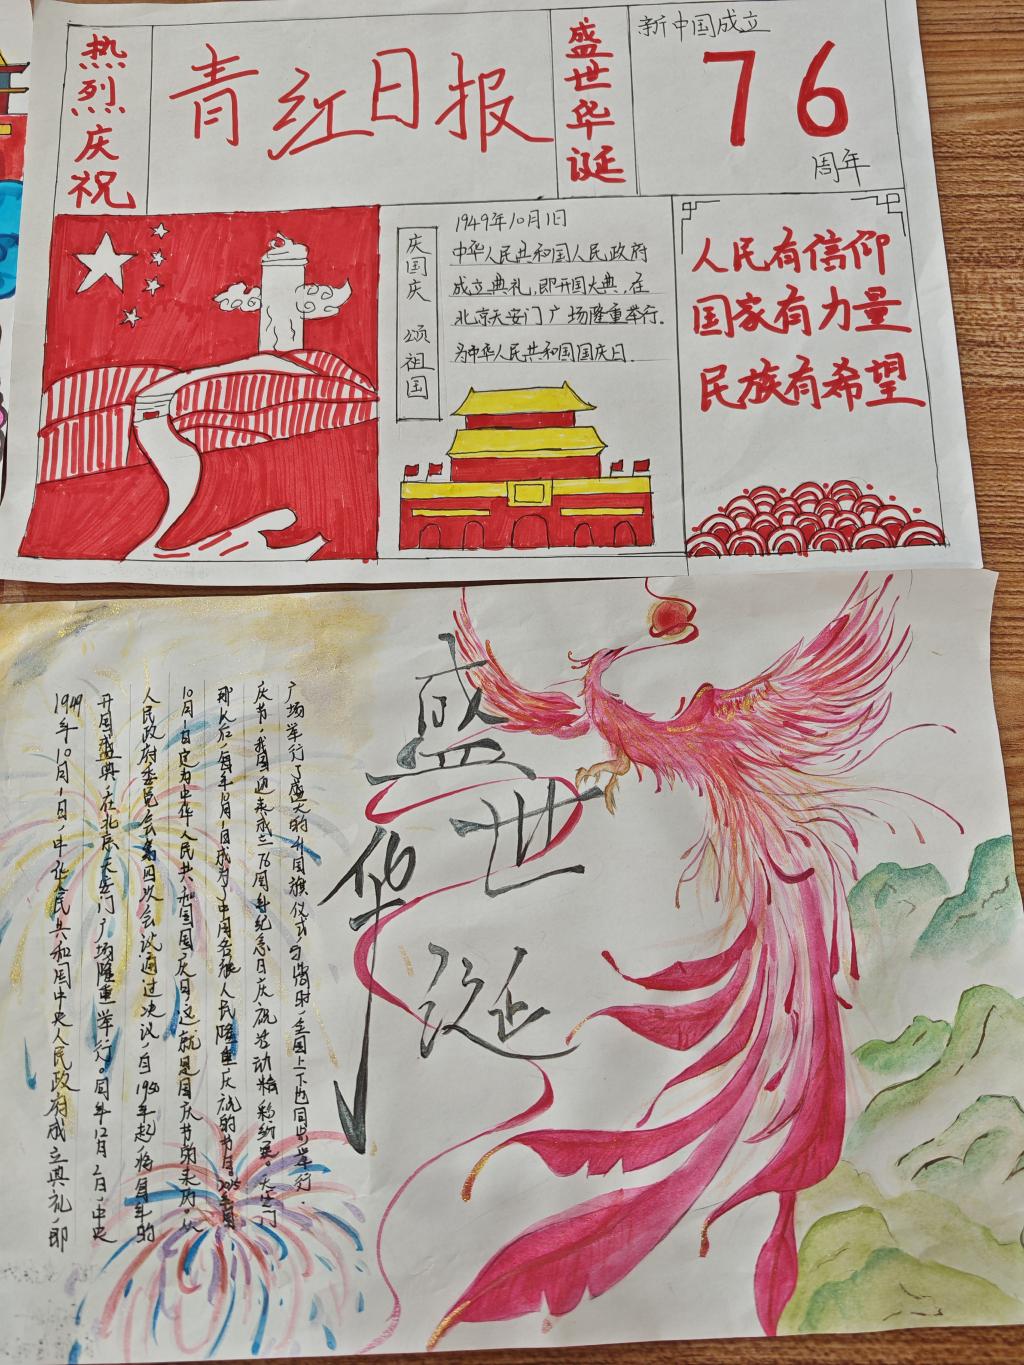 热烈庆祝
青红日报
盛世华诞
新中国成立
76
周年
庆国庆 颂祖国
1949年10月1日
中华人民共和国人民政府
成立典礼,即开国大典,在
北京天安门广场隆重举行.
为中华人民共和国国庆日.
人民有信仰
国家有力量
民族有希望
盛世华诞
1949年10月1日,中华人民共和国中央人民政府成立典礼,即
开国盛典,在北京天安门广场隆重举行。同年12月2日,中央
人民政府委员会第四次会议通过决议,自1950年起,将每年的
10月1日定为中华人民共和国国庆日,这就是国庆节的来历。从
那以后,每年10月1日成为了中国各族人民隆重庆祝的节日。2025年国
庆节,我国迎来成立76周年纪念日庆祝活动精彩纷呈。天安门
广场举行了盛大的升国旗仪式,与此同时,全国上下也同步举行